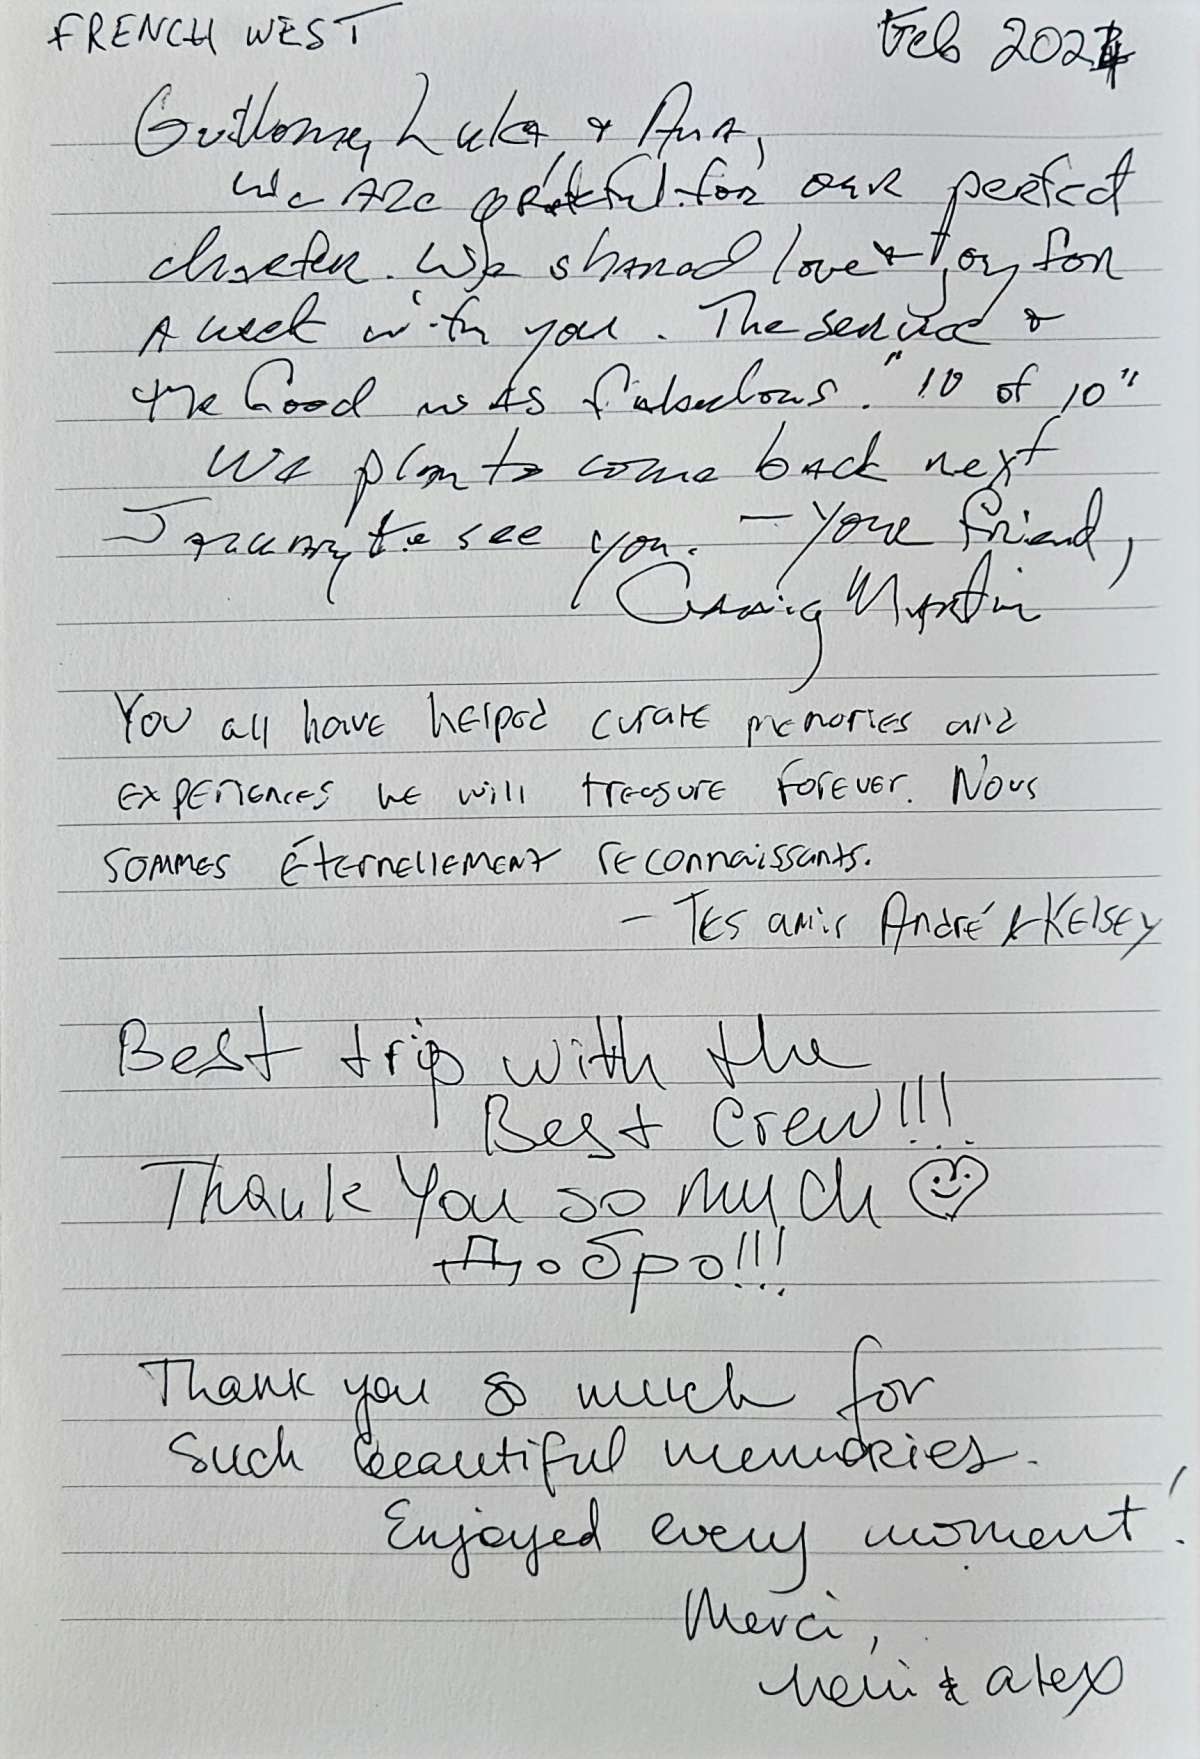 FRENCH WEST Feb 2024
Guillome, Luka & Ana,
We are grateful for our perfect
charter. We shared love & joy for
a week with you. The service &
the food was fabulous. "10 of 10"
We plan to come back next
January to see you. – Your friend,
Craig Martin
You all have helped curate memories and
experiences we will treasure forever. Nous
sommes éternellement reconnaissants.
– Tes amis André & Kelsey
Best trip with the
Best crew!!!
Thank You so much
Добро!!!
Thank you so much for
such beautiful memories.
Enjoyed every moment!
Merci,
& alex